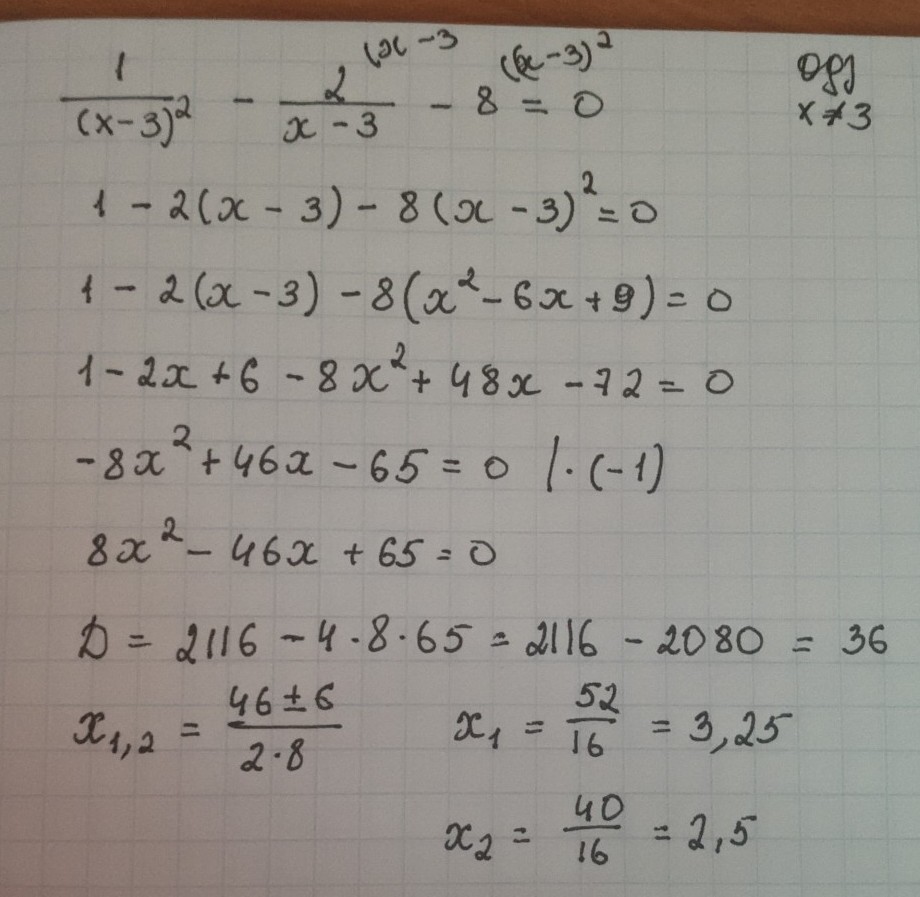 1/(x-3)² - 2/(x-3) ^(x-3) - 8 ^(x-3)² = 0 ОДЗ
x ≠ 3
1 - 2(x - 3) - 8(x - 3)² = 0
1 - 2(x - 3) - 8(x² - 6x + 9) = 0
1 - 2x + 6 - 8x² + 48x - 72 = 0
-8x² + 46x - 65 = 0 |·(-1)
8x² - 46x + 65 = 0
D = 2116 - 4·8·65 = 2116 - 2080 = 36
x₁,₂ = (46 ± 6)/(2·8) x₁ = 52/16 = 3,25
x₂ = 40/16 = 2,5